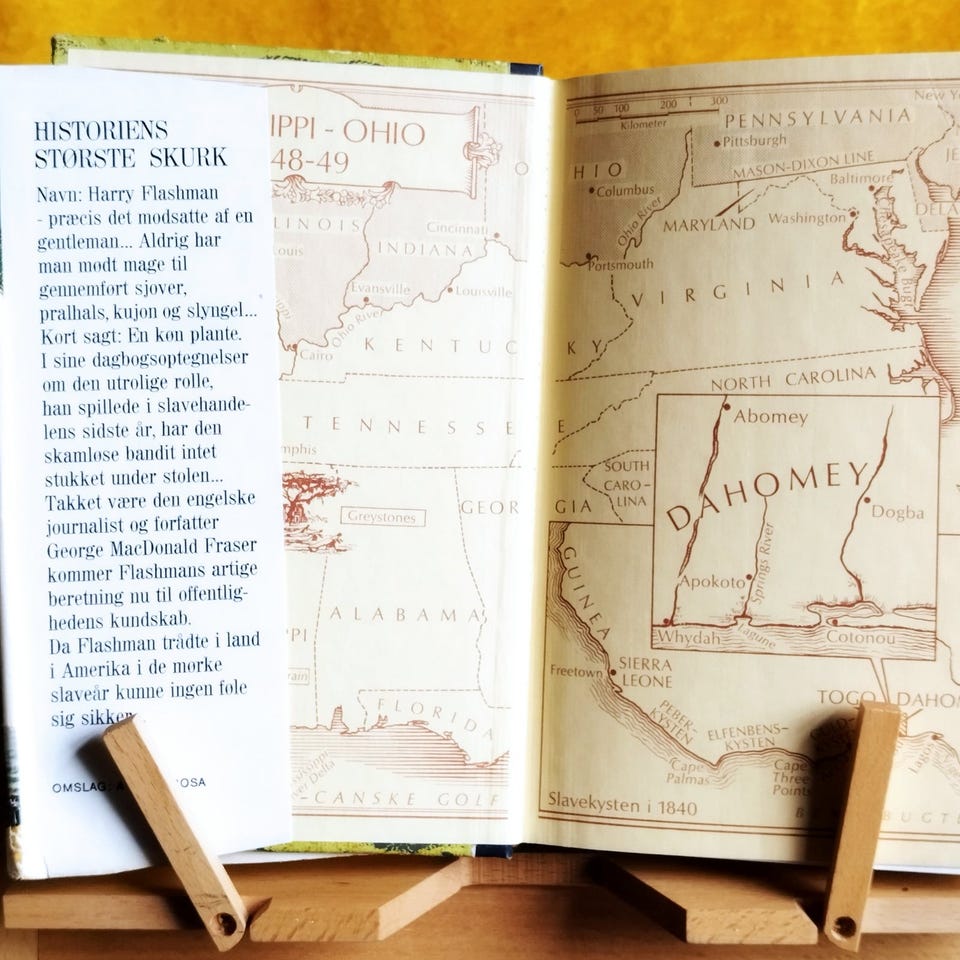 HISTORIENS
STØRSTE SKURK
Navn: Harry Flashman
- præcis det modsatte af en
gentleman... Aldrig har
man mødt mage til
gennemført sjover,
pralhals, kujon og slyngel...
Kort sagt: En køn plante.
I sine dagbogsoptegnelser
om den utrolige rolle,
han spillede i slavehande-
lens sidste år, har den
skamløse bandit intet
stukket under stolen...
Takket være den engelske
journalist og forfatter
George MacDonald Fraser
kommer Flashmans artige
beretning nu til offentlig-
hedens kundskab.
Da Flashman trådte i land
i Amerika i de mørke
slaveår kunne ingen føle
sig sikker
OMSLAG: A OSA
IPPI - OHIO
48-49
LINOIS
INDIANA
Cincinnati
Louis
Evansville
Louisville
Ohio River
Cairo
KENTUCKY
TENNESSEE
mphis
Greystones
GEORGIA
ALABAMA
PPI
FLORIDA
CANSKE GOLF
0 50 100 200 300
Kilometer
New Yo
PENNSYLVANIA
Pittsburgh
OHIO
Columbus
MASON-DIXON LINE
Baltimore
MARYLAND
Washington
DELA
Ohio River
Chesapeake Bugt
Portsmouth
VIRGINIA
NORTH CAROLINA
SOUTH
CARO-
LINA
Abomey
DAHOMEY
Dogba
Springs River
Apokoto
Whydah
Lagune
Cotonou
GUINEA
Freetown
SIERRA
LEONE
TOGO
DAHOM
PEBER-
KYSTEN
ELFENBENS-
KYSTEN
Cape
Palmas
Cape
Three
Points
Lagos
Slavekysten i 1840
BUGTE